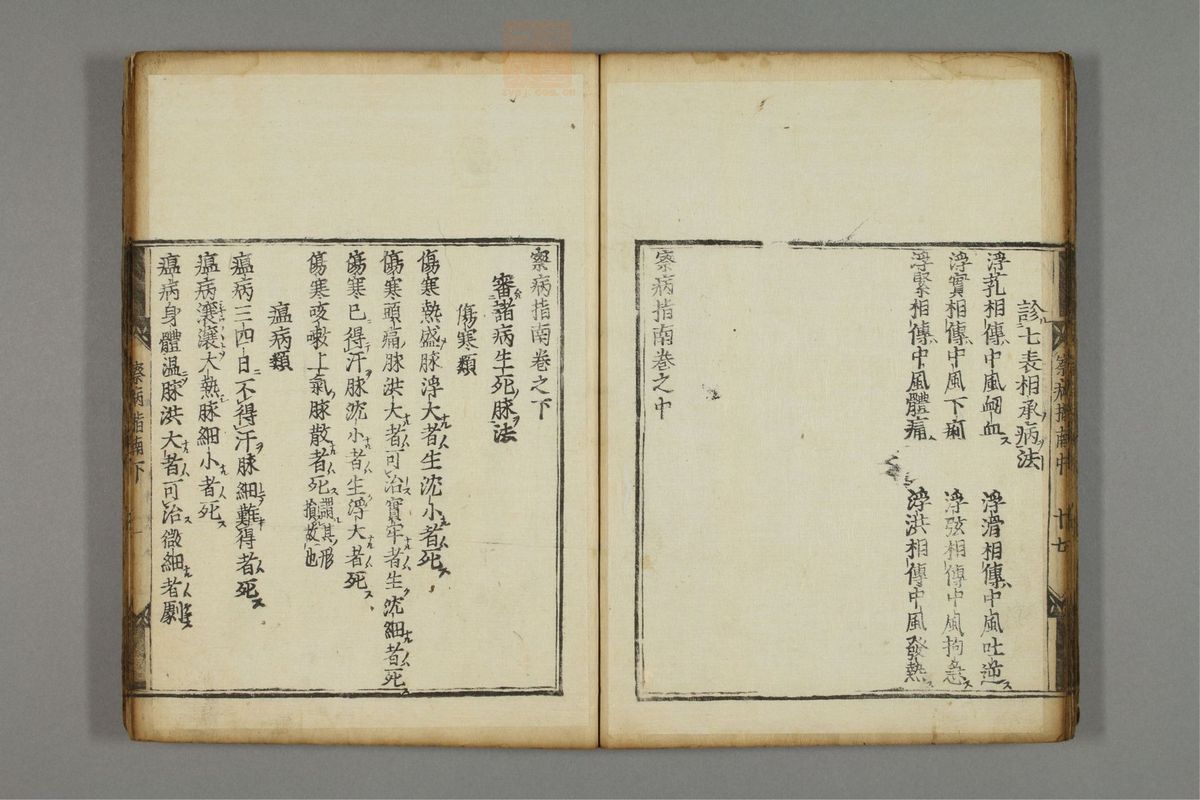 診七表相承病法
浮芤相傳中風衂血　浮滑相傳中風吐逆
浮實相傳中風下痢　浮弦相傳中風拘急
浮緊相傳中風體痛　浮洪相傳中風發熱
察病指南卷之中
察病指南中　十七
察病指南卷之下
審諸病生死脉法
傷寒類
傷寒熱盛脉浮大者生沈小者死
傷寒頭痛脉洪大者可治實牢者生沈細者死
傷寒已得汗脉沈小者生浮大者死
傷寒咳嗽上氣脉散者死謂其形損故也
瘟病類
瘟病三四日不得汗脉細難得者死
瘟病穰穰大熱脉細小者死
瘟病身體温脉洪大者可治微細者劇
察病指南下